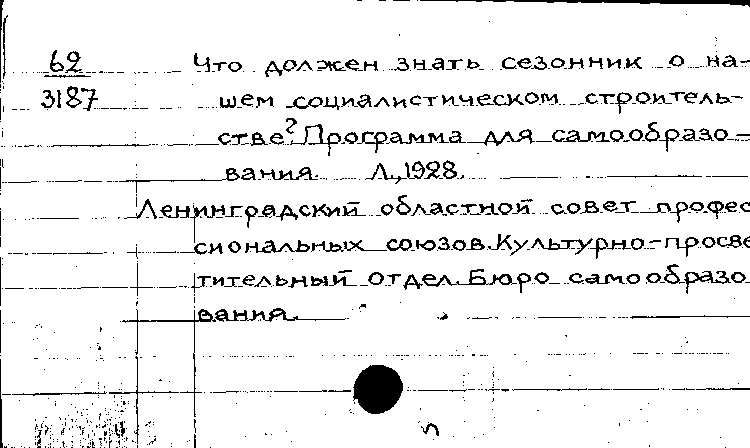 62 Что должен знать сезонник о на-
3187 шем социалистическом строитель-
стве? Программа для самообразо-
вания. Л., 1928.
Ленинградский областной совет профес
сиональных союзов. Культурно-просве
тительный отдел. Бюро самообразо
вания.